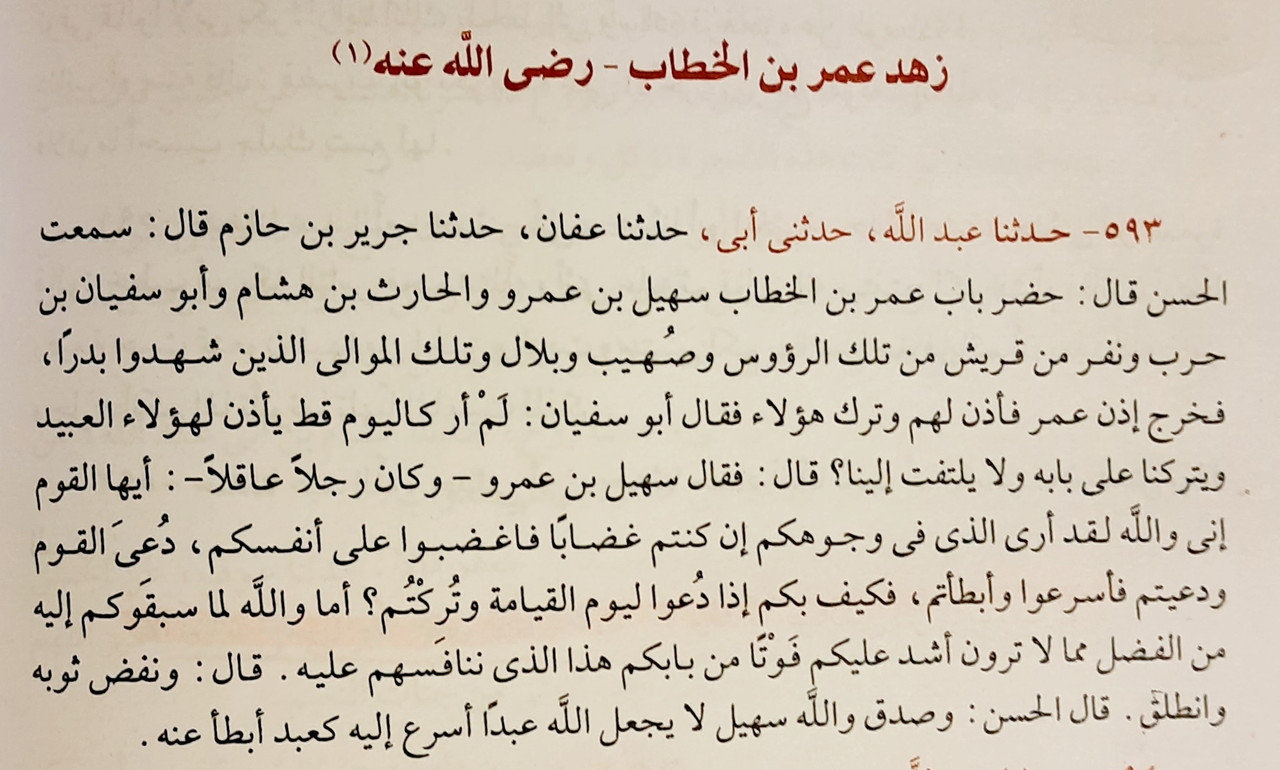 زهد عمر بن الخطاب - رضى اللَّه عنه(١)
٥٩٣- حدثنا عبد اللَّه، حدثنى أبى، حدثنا عفان، حدثنا جرير بن حازم قال: سمعت
الحسن قال: حضر باب عمر بن الخطاب سهيل بن عمرو والحارث بن هشام وأبو سفيان بن
حرب ونفر من قريش من تلك الرؤوس وصُهيب وبلال وتلك الموالى الذين شهدوا بدرًا،
فخرج إذن عمر فأذن لهم وترك هؤلاء فقال أبو سفيان: لَمْ أر كاليوم قط يأذن لهؤلاء العبيد
ويتركنا على بابه ولا يلتفت إلينا؟ قال: فقال سهيل بن عمرو - وكان رجلاً عاقلاً-: أيها القوم
إنى واللَّه لقد أرى الذى فى وجوهكم إن كنتم غضابًا فاغضبوا على أنفسكم، دُعىَ القوم
ودعيتم فأسرعوا وأبطأتم، فكيف بكم إذا دُعوا ليوم القيامة وتُركْتُم؟ أما واللَّه لما سبقَوكم إليه
من الفضل مما لا ترون أشد عليكم فَوْتًا من بابكم هذا الذى ننافَسهم عليه. قال: ونفض ثوبه
وانطلق. قال الحسن: وصدق واللَّه سهيل لا يجعل اللَّه عبدًا أسرع إليه كعبد أبطأ عنه.